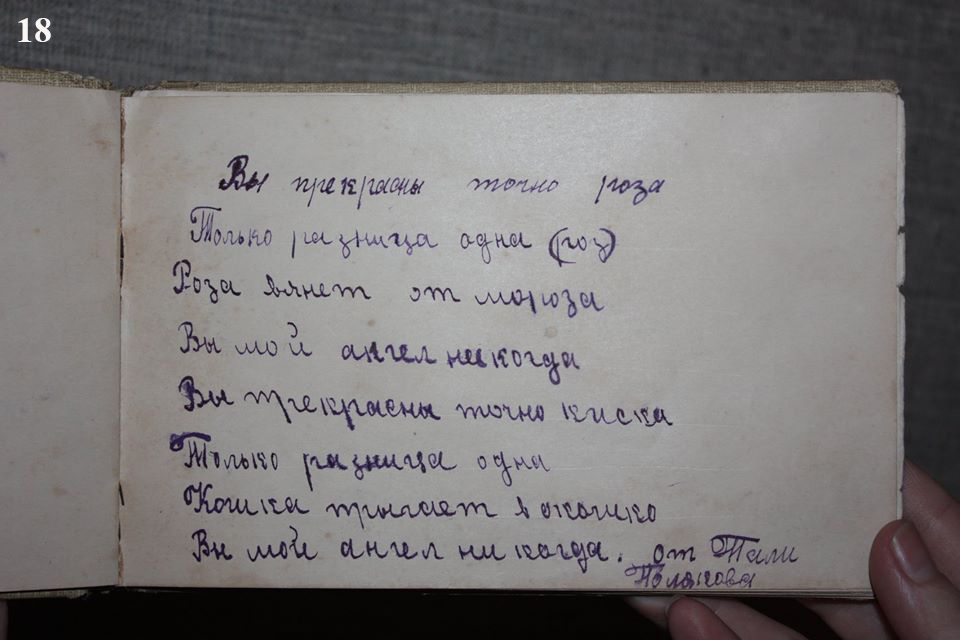 18
Вы прекрасны точно роза
Только разница одна (роз)
Роза вянет от мороза
Вы мой ангел никогда
Вы прекрасны точно киска
Только разница одна
Кошка прыгает в окошко
Вы мой ангел ни когда. от Тали